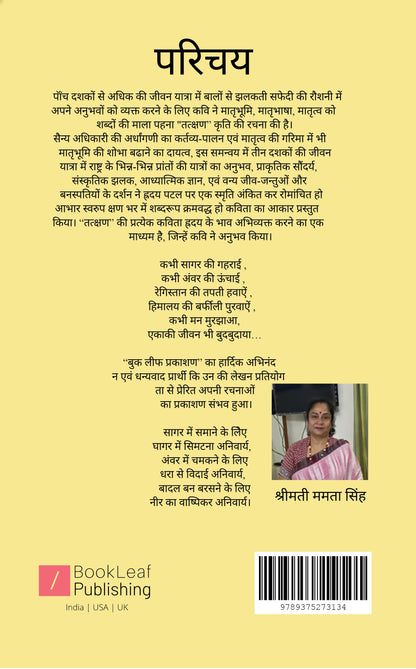 परिचय
पाँच दशकों से अधिक की जीवन यात्रा में बालों से झलकती सफेदी की रौशनी में
अपने अनुभवों को व्यक्त करने के लिए कवि ने मातृभूमि, मातृभाषा, मातृत्व को
शब्दों की माला पहना "तत्क्षण" कृति की रचना की है।
सैन्य अधिकारी की अर्धांगणी का कर्तव्य-पालन एवं मातृत्व की गरिमा में भी
मातृभूमि की शोभा बढाने का दायत्व, इस समन्वय में तीन दशकों की जीवन
यात्रा में राष्ट्र के भिन्न-भिन्न प्रांतों की यात्रों का अनुभव, प्राकृतिक सौंदर्य,
संस्कृतिक झलक, आध्यात्मिक ज्ञान, एवं वन्य जीव-जन्तुओं और
बनस्पतियों के दर्शन ने ह्रदय पटल पर एक स्मृति अंकित कर रोमांचित हो
आभार स्वरुप क्षण भर में शब्दरूप क्रमवद्ध हो कविता का आकार प्रस्तुत
किया। "तत्क्षण" की प्रत्येक कविता ह्रदय के भाव अभिव्यक्त करने का एक
माध्यम है, जिन्हें कवि ने अनुभव किया।
कभी सागर की गहराई ,
कभी अंवर की ऊंचाई ,
रेगिस्तान की तपती हवाऐं ,
हिमालय की बर्फीली पुरवाऐं ,
कभी मन मुरझाआ,
एकाकी जीवन भी बुदबुदाया...
"बुक लीफ प्रकाशण" का हार्दिक अभिनंद
न एवं धन्यवाद प्रार्थी कि उन की लेखन प्रतियोग
ता से प्रेरित अपनी रचनाओं
का प्रकाशण संभव हुआ।
सागर में समाने के लिए
घागर में सिमटना अनिवार्य,
अंवर में चमकने के लिए
धरा से विदाई अनिवार्य,
बादल बन बरसने के लिए
नीर का वाष्पिकर अनिवार्य।
श्रीमती ममता सिंह
BookLeaf
Publishing
India | USA | UK
9789375273134